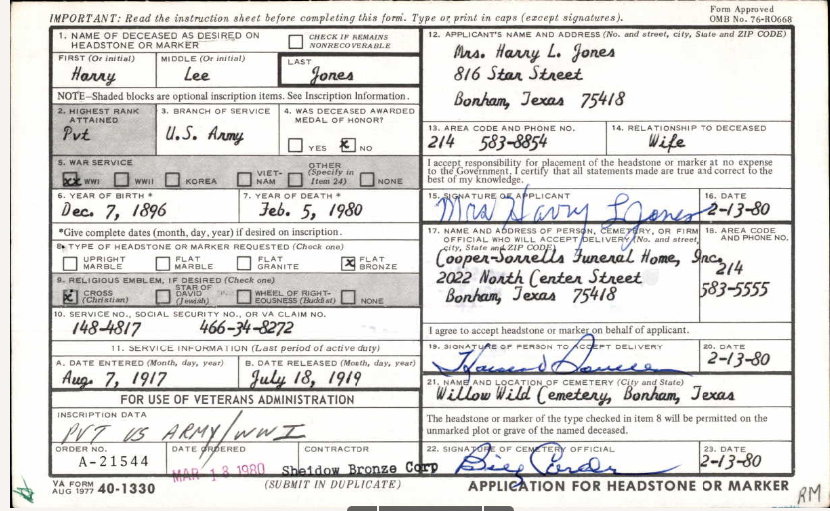 IMPORTANT: Read the instruction sheet before completing this form. Type or print in caps (except signatures).
Form Approved
OMB No. 76-RO668
1. NAME OF DECEASED AS DESIRED ON HEADSTONE OR MARKER
CHECK IF REMAINS NONRECOVERABLE
FIRST (Or initial) MIDDLE (Or initial) LAST
Harry Lee Jones
NOTE—Shaded blocks are optional inscription items. See Inscription Information.
2. HIGHEST RANK ATTAINED
Pvt
3. BRANCH OF SERVICE
U.S. Army
4. WAS DECEASED AWARDED MEDAL OF HONOR?
YES X NO
5. WAR SERVICE
XX WWI WWII KOREA VIET-NAM OTHER (Specify in Item 24) NONE
6. YEAR OF BIRTH *
Dec. 7, 1896
7. YEAR OF DEATH *
Feb. 5, 1980
*Give complete dates (month, day, year) if desired on inscription.
8. TYPE OF HEADSTONE OR MARKER REQUESTED (Check one)
UPRIGHT MARBLE FLAT MARBLE FLAT GRANITE X FLAT BRONZE
9. RELIGIOUS EMBLEM, IF DESIRED (Check one)
X CROSS (Christian) STAR OF DAVID (Jewish) WHEEL OF RIGHT-EOUSNESS (Buddist) NONE
10. SERVICE NO., SOCIAL SECURITY NO., OR VA CLAIM NO.
148-4817 466-34-8272
11. SERVICE INFORMATION (Last period of active duty)
A. DATE ENTERED (Month, day, year)
Aug. 7, 1917
B. DATE RELEASED (Month, day, year)
July 18, 1919
FOR USE OF VETERANS ADMINISTRATION
INSCRIPTION DATA
PVT US ARMY/WWI
ORDER NO.
A-21544
DATE ORDERED
MAR 18 1980
CONTRACTOR
Sheidow Bronze Corp
VA FORM
AUG 1977 40-1330
(SUBMIT IN DUPLICATE)
12. APPLICANT'S NAME AND ADDRESS (No. and street, city, State and ZIP CODE)
Mrs. Harry L. Jones
816 Star Street
Bonham, Texas 75418
13. AREA CODE AND PHONE NO.
214 583-8854
14. RELATIONSHIP TO DECEASED
Wife
I accept responsibility for placement of the headstone or marker at no expense
to the Government. I certify that all statements made are true and correct to the
best of my knowledge.
15. SIGNATURE OF APPLICANT
Mrs Harry L Jones
16. DATE
2-13-80
17. NAME AND ADDRESS OF PERSON, CEMETERY, OR FIRM
OFFICIAL WHO WILL ACCEPT DELIVERY (No. and street,
city, State and ZIP CODE)
Cooper-Sorrells Funeral Home, Inc.
2022 North Center Street
Bonham, Texas 75418
18. AREA CODE AND PHONE NO.
214
583-5555
I agree to accept headstone or marker on behalf of applicant.
19. SIGNATURE OF PERSON TO ACCEPT DELIVERY
20. DATE
2-13-80
21. NAME AND LOCATION OF CEMETERY (City and State)
Willow Wild Cemetery, Bonham, Texas
The headstone or marker of the type checked in item 8 will be permitted on the
unmarked plot or grave of the named deceased.
22. SIGNATURE OF CEMETERY OFFICIAL
23. DATE
2-13-80
APPLICATION FOR HEADSTONE OR MARKER
RM